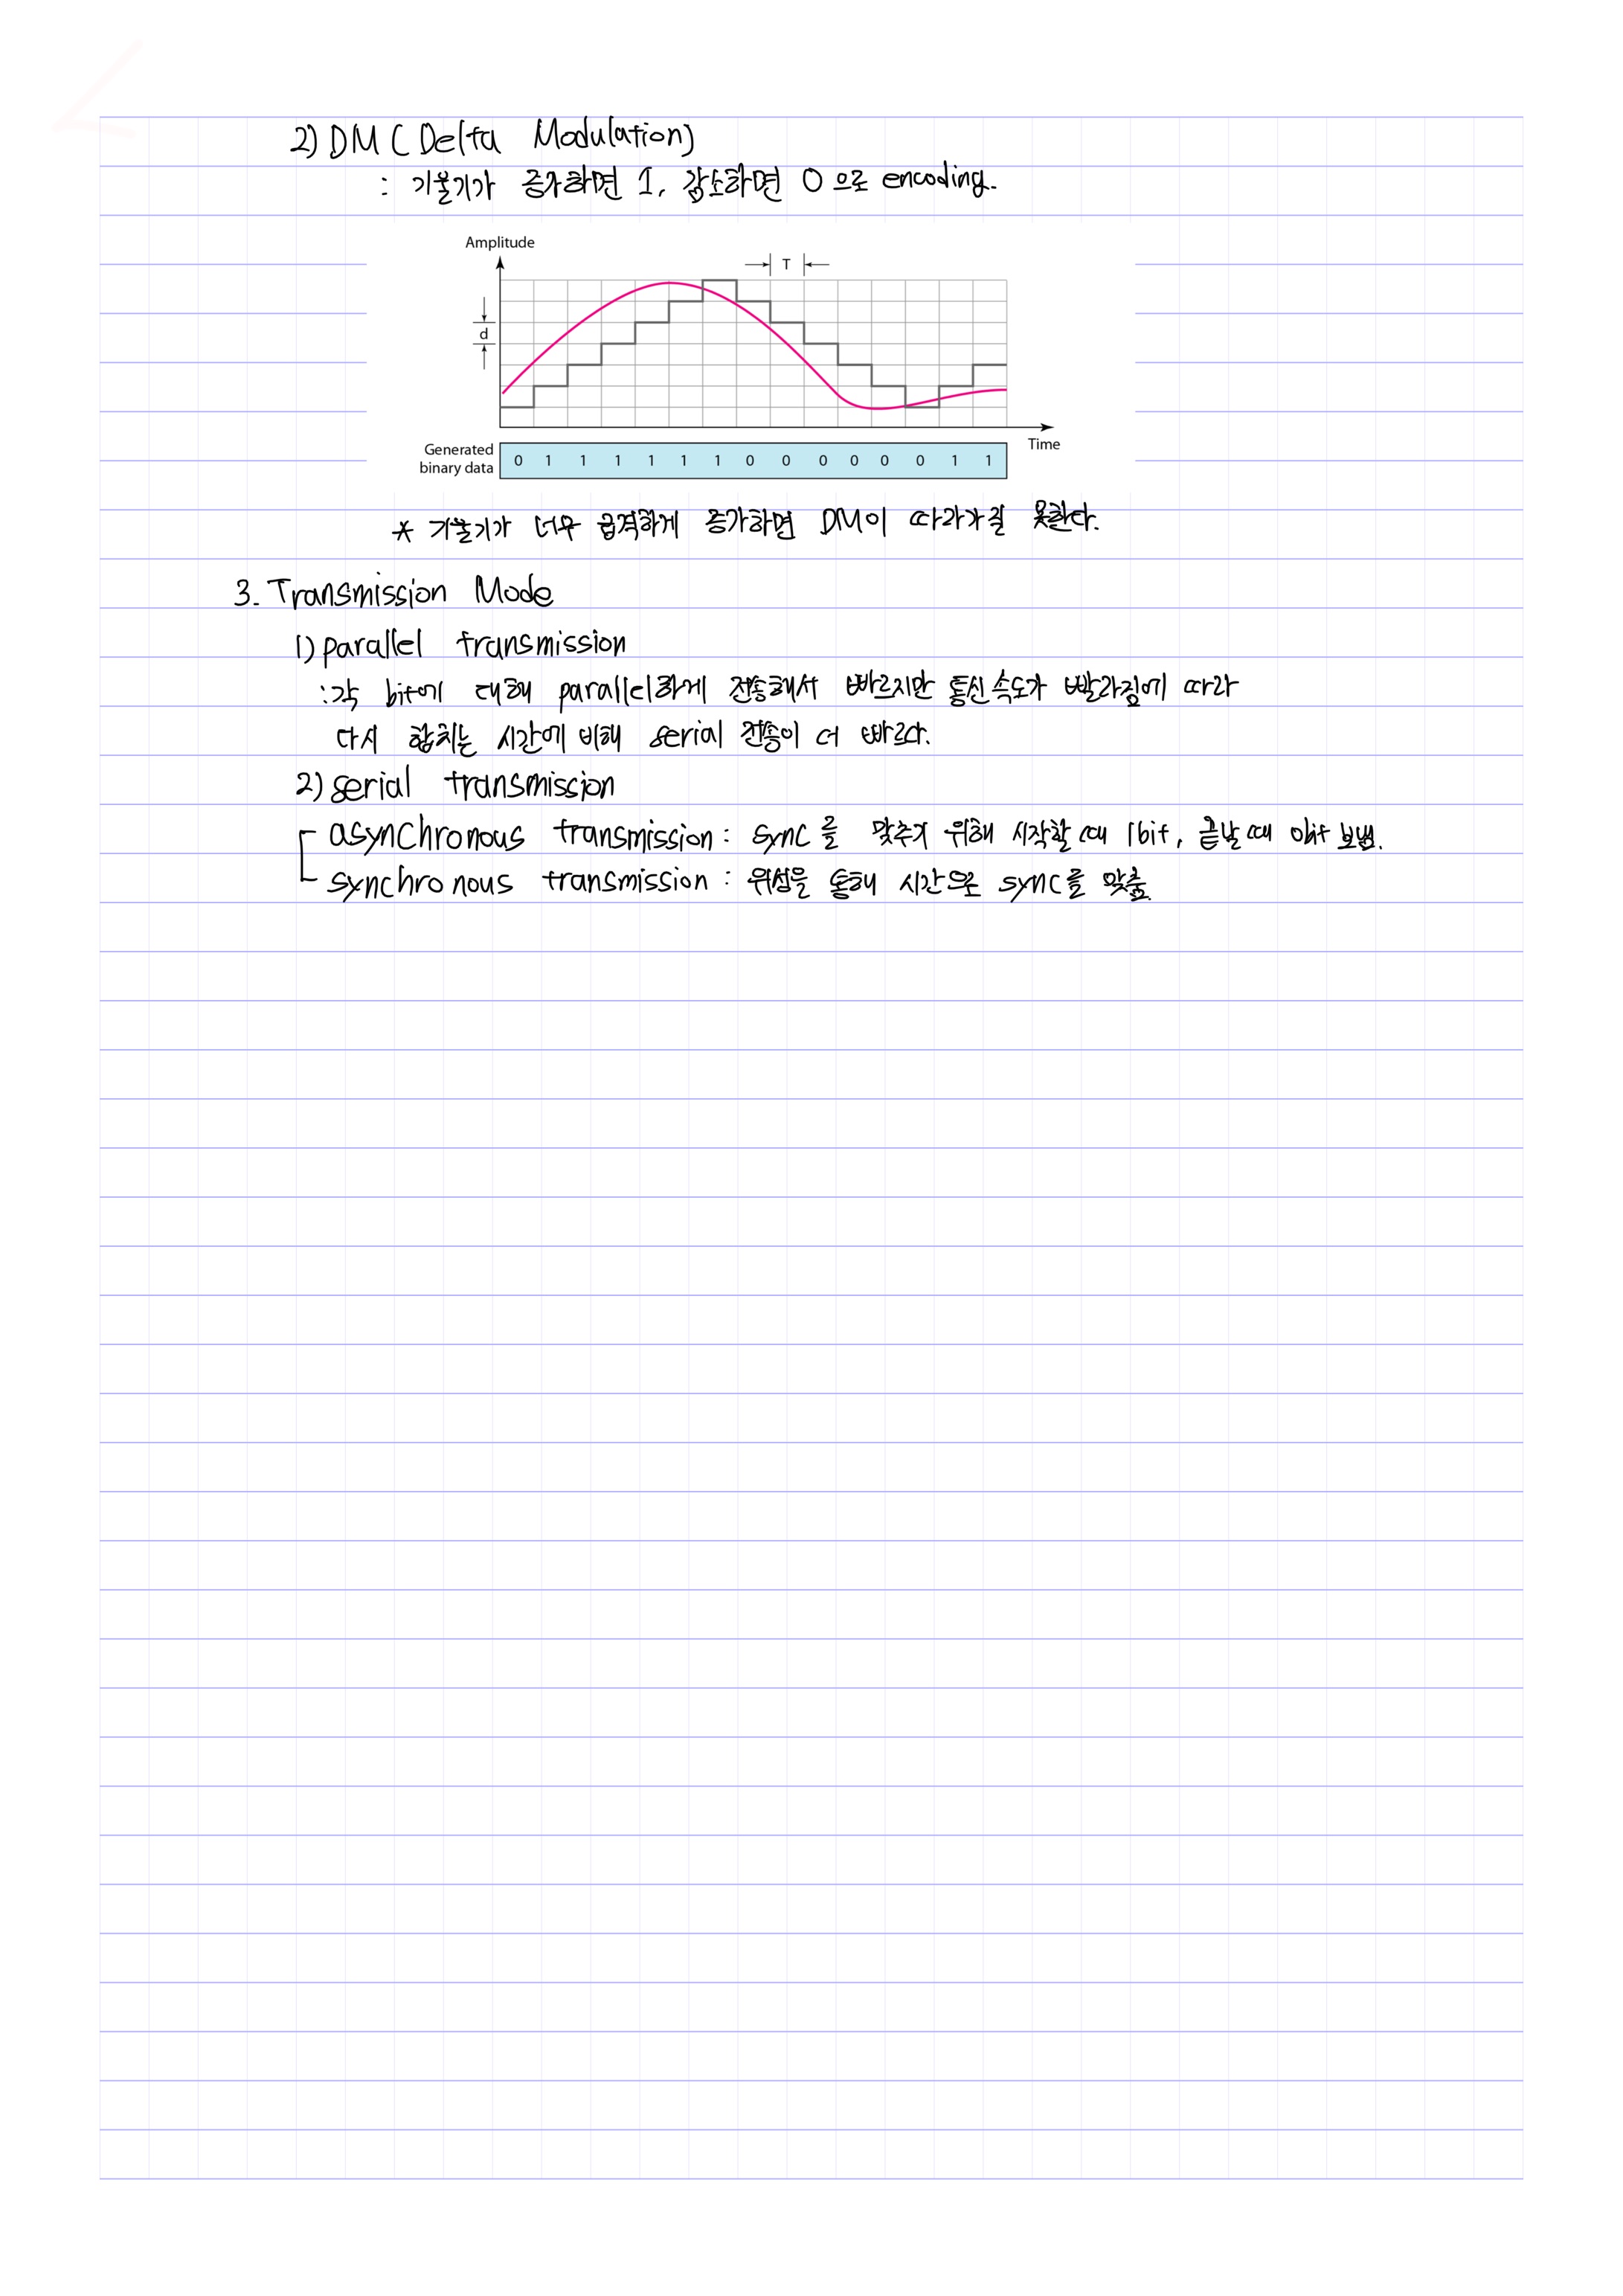 2) DM (Delta Modulation)
: 기울기가 증가하면 1, 감소하면 0으로 encoding.
Amplitude
T
d
Time
Generated
binary data
0 1 1 1 1 1 1 0 0 0 0 0 0 1 1
* 기울기가 너무 급격하게 증가하면 DM이 따라가질 못한다.
3. Transmission Mode
1) parallel transmission
: 각 bit에 대해 parallel하게 전송해서 빠르지만 통신 속도가 빨라짐에 따라
다시 합치는 시간에 비해 serial 전송이 더 빠르다.
2) serial transmission
asynchronous transmission : sync를 맞추기 위해 시작할 때 1bit, 끝날 때 0bit 보냄.
synchronous transmission : 위성을 통해 시간으로 sync를 맞춤.